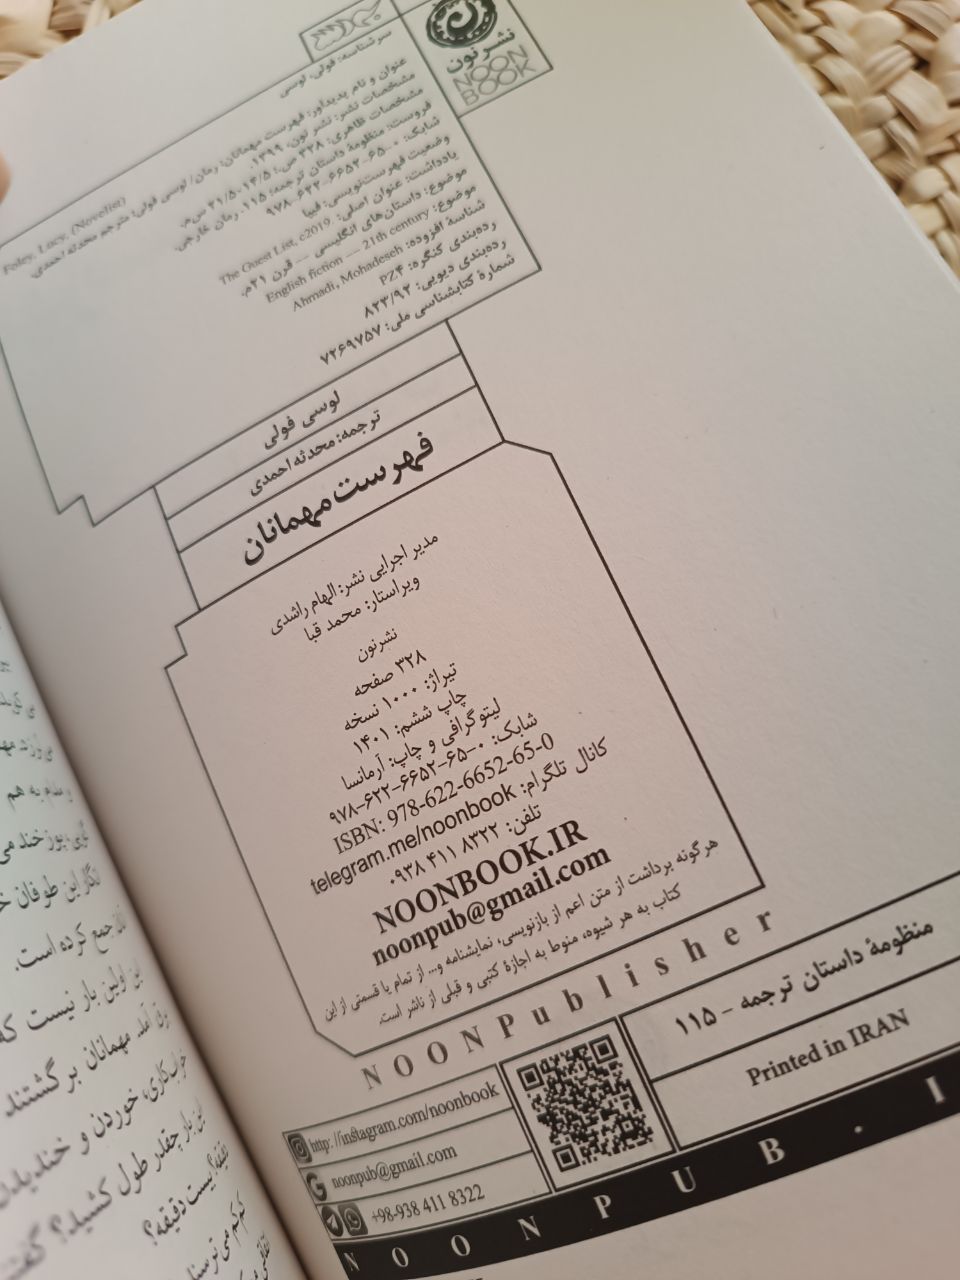 نشر نون
NOON
BOOK
سرشناسه: فولی، لوسی
Foley, Lucy, (Novelist)
عنوان و نام پدیدآور: فهرست مهمانان: رمان/ لوسی فولی؛ مترجم محدثه احمدی.
مشخصات نشر: نشر نون، ۱۳۹۹.
مشخصات ظاهری: ۳۲۸ ص.؛ ۱۴/۵×۲۱/۵ س‌م.
فروست: منظومهٔ داستان ترجمه؛ ۱۱۵. رمان خارجی.
شابک: ۰-۶۵-۶۶۵۲-۶۲۲-۹۷۸
وضعیت فهرست‌نویسی: فیپا
یادداشت: عنوان اصلی: The Guest List, c2019.
موضوع: داستان‌های انگلیسی — قرن ۲۱م.
موضوع: English fiction — 21th century
شناسهٔ افزوده: Ahmadi, Mohadeseh
رده‌بندی کنگره: PZ۴
رده‌بندی دیویی: ۸۲۳/۹۲
شمارهٔ کتابشناسی ملی: ۷۲۶۹۷۵۷
لوسی فولی
ترجمه: محدثه احمدی
فهرست مهمانان
مدیر اجرایی نشر: الهام راشدی
ویراستار: محمد قبا
نشرنون
۳۲۸ صفحه
تیراژ: ۱۰۰۰ نسخه
چاپ ششم: ۱۴۰۱
لیتوگرافی و چاپ: آرمانسا
شابک: ۰-۶۵-۶۶۵۲-۶۲۲-۹۷۸
ISBN: 978-622-6652-65-0
کانال تلگرام: telegram.me/noonbook
تلفن: ۸۳۲۲ ۴۱۱ ۰۹۳۸
NOONBOOK.IR
noonpub@gmail.com
هرگونه برداشت از متن اعم از بازنویسی، نمایشنامه و... از تمام یا قسمتی از این
کتاب به هر شیوه، منوط به اجازهٔ کتبی و قبلی از ناشر است.
NOONPublisher
منظومهٔ داستان ترجمه - ۱۱۵
Printed in IRAN
http://instagram.com/noonbook
noonpub@gmail.com
+98-938 411 8322
NOONPUB.I
و تمام به هم
پوزخند می
انگار این طوفان
جمع کرده است.
این اولین بار نیست که
آمد. مهمانان برگشتند
خراب‌کاری، خوردن و خندیدن
این بار چقدر طول کشید؟
دقیقه؟ بیست دقیقه؟
کم‌کم